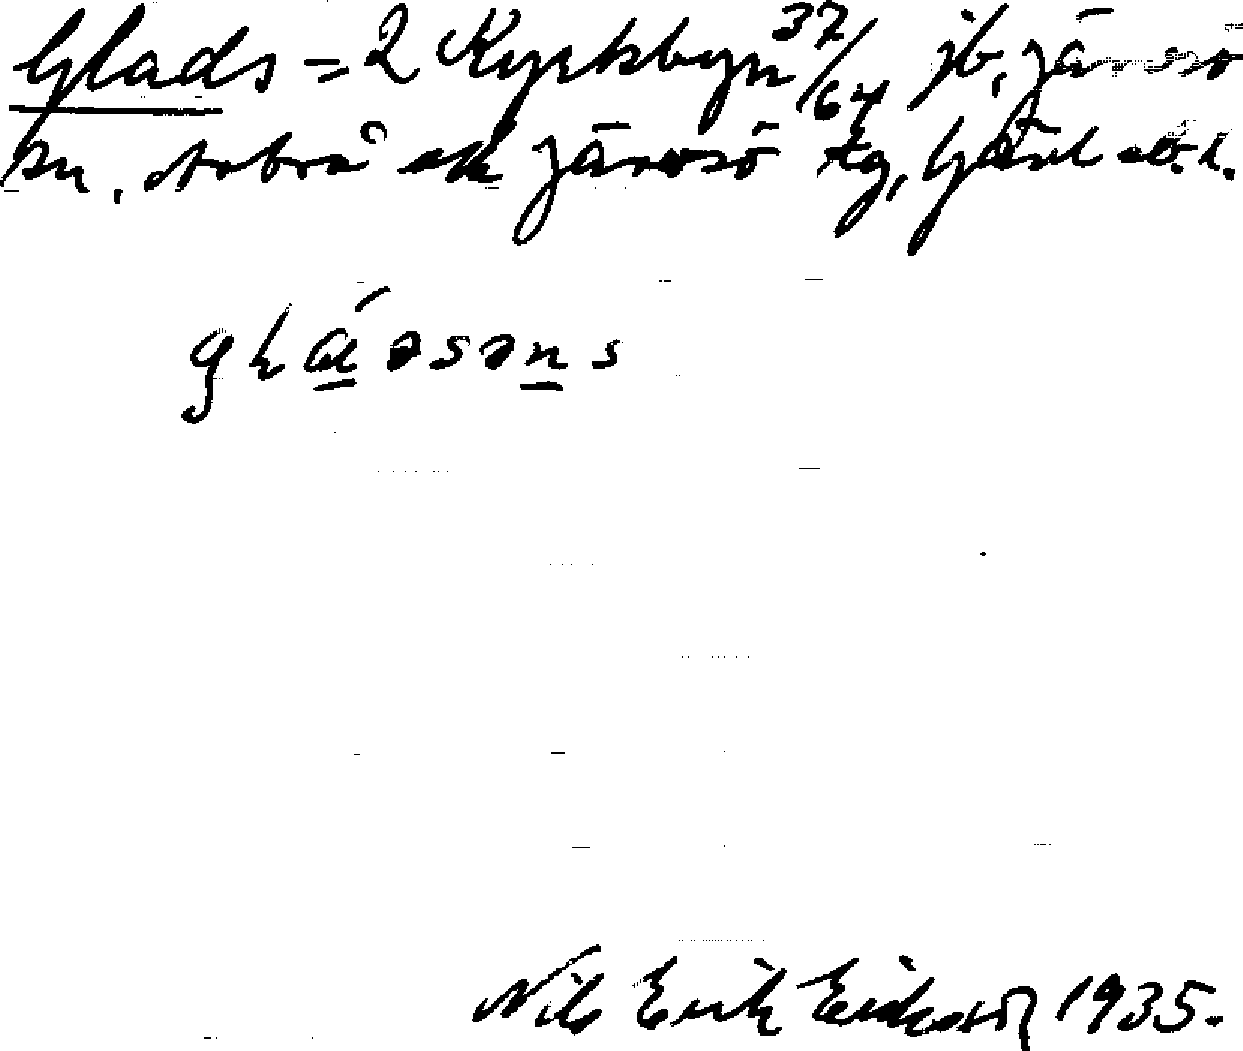 Glads = 2 Kyrkbyn 37/64 jb, Järvsö
sn, Arbrå ok Järvsö tg, Gävl
Nils Erik Eriksson 1935.